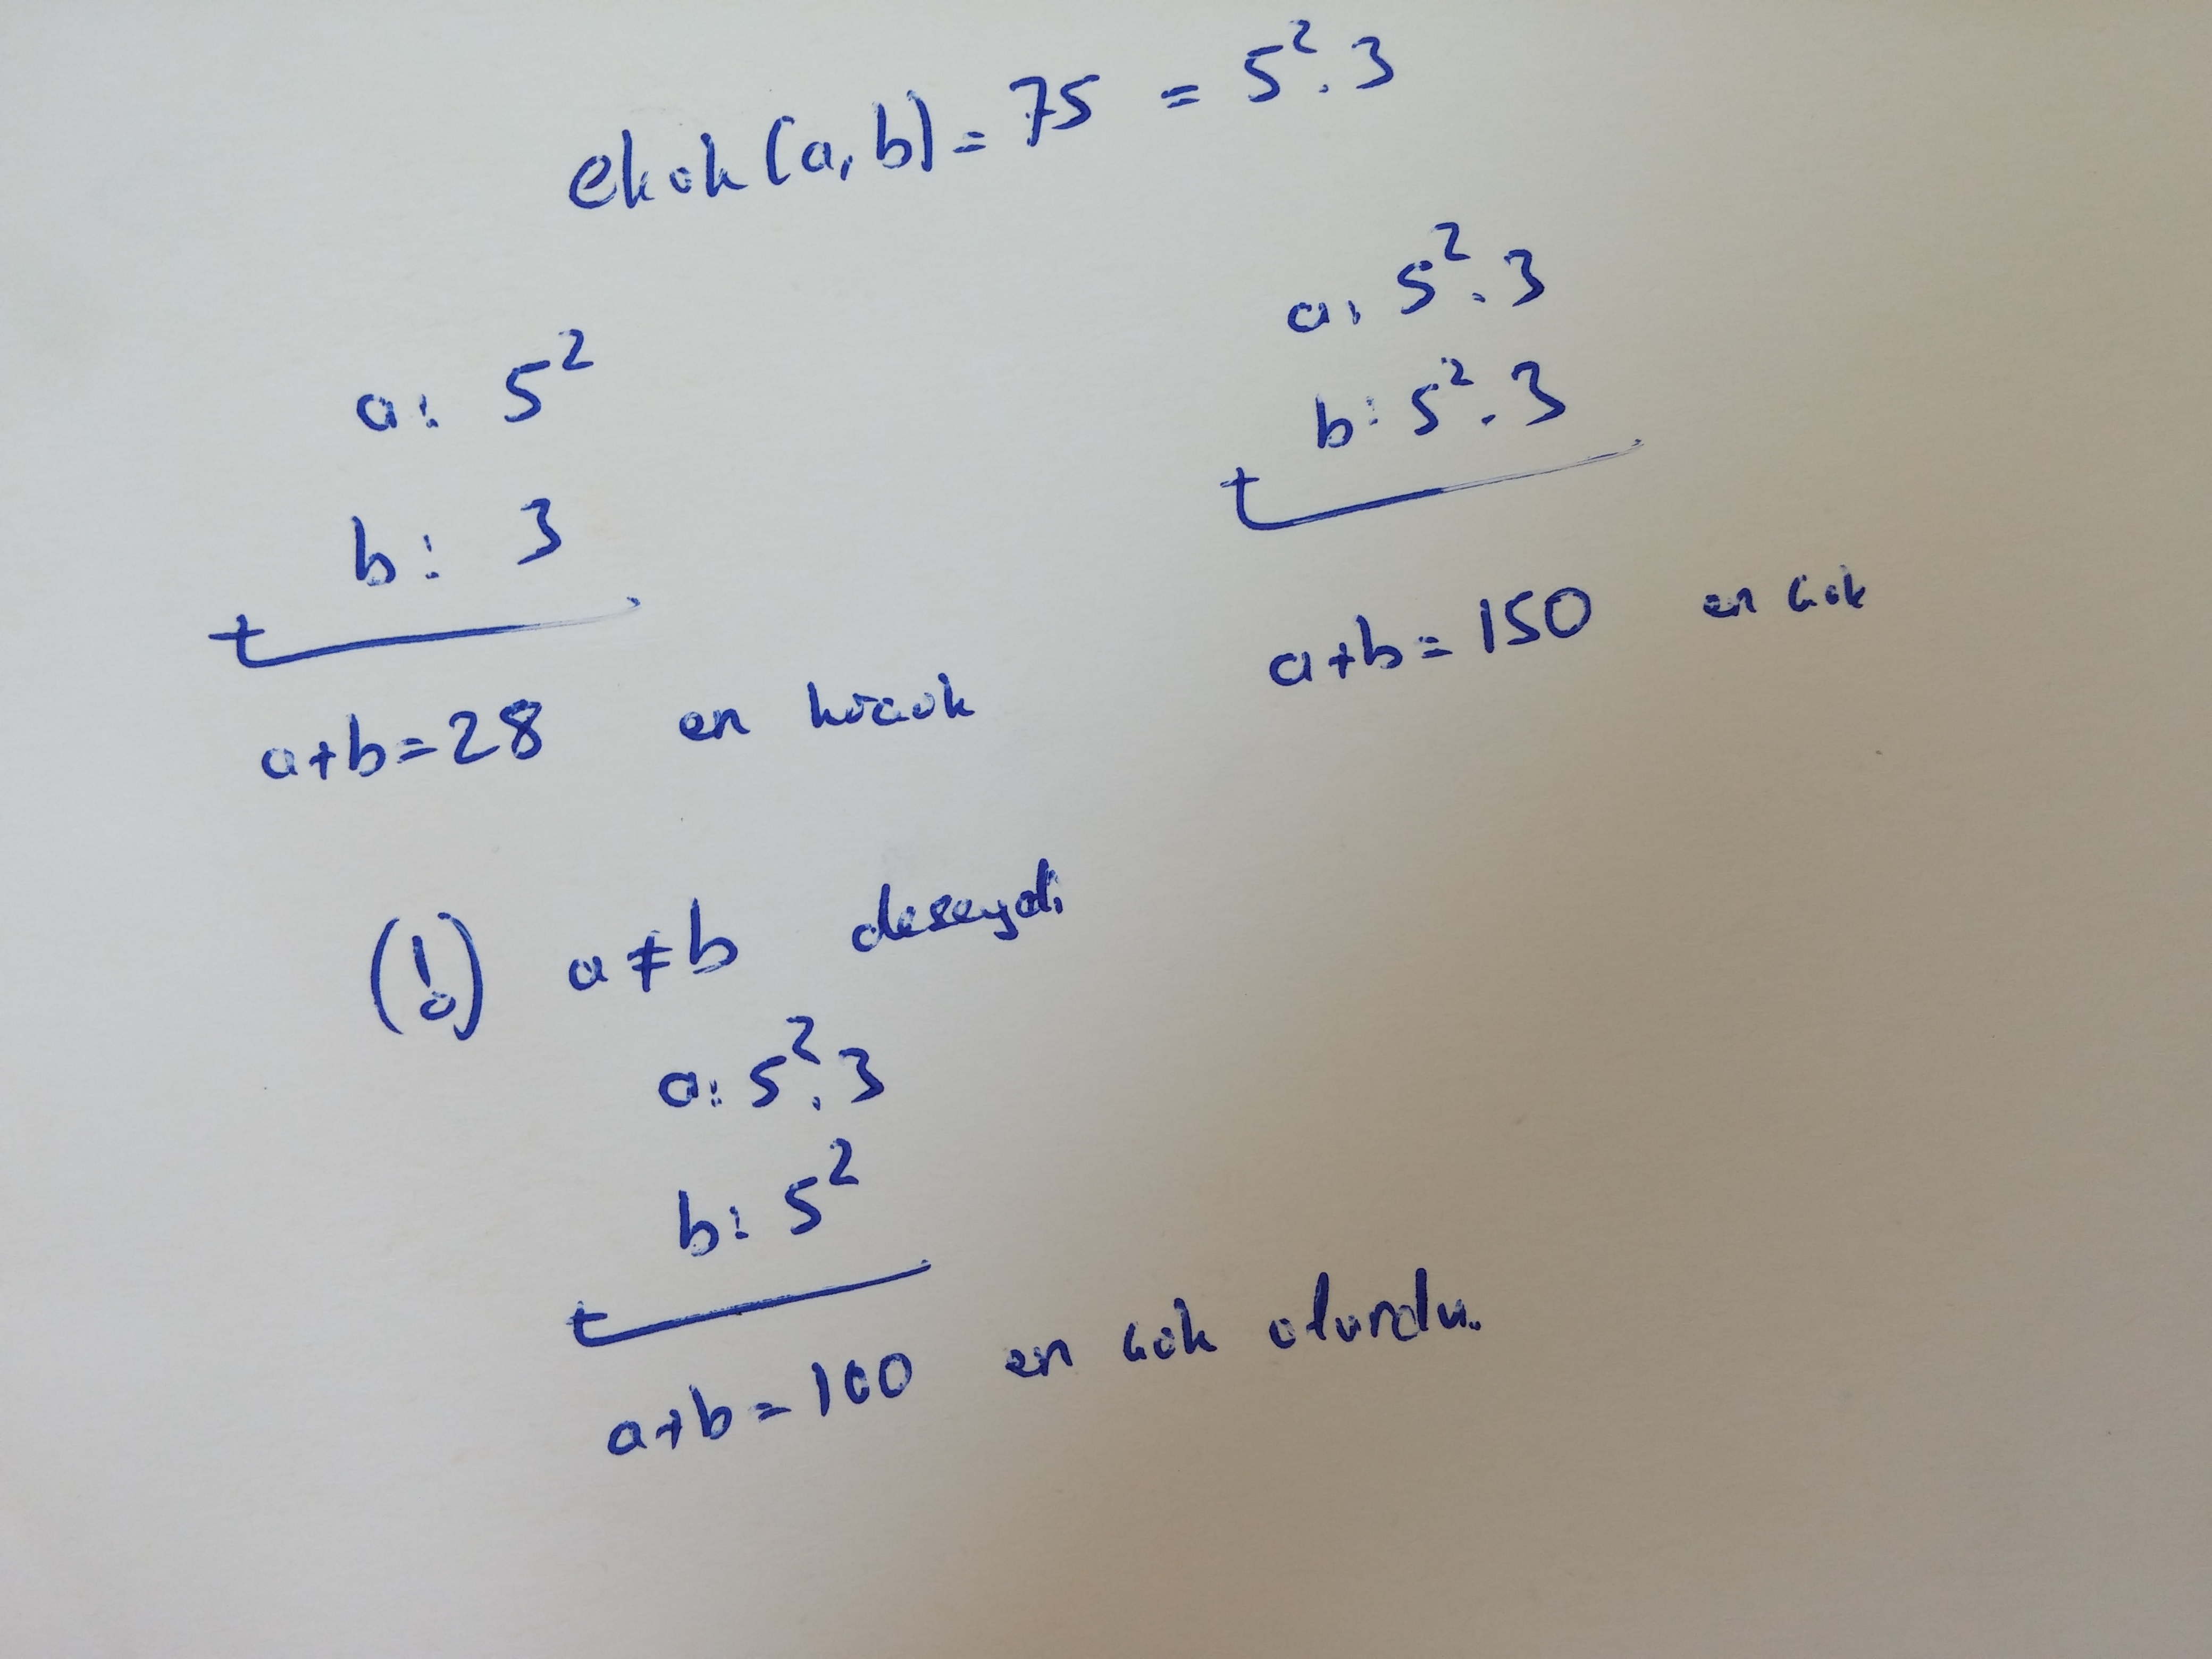 ekok(a,b)=75 = 5².3
a: 5²
b: 3
a+b=28 en küçük
a: 5².3
b: 5².3
a+b=150 en çok
(!) a≠b deseydi
a: 5².3
b: 5²
a+b=100 en çok olurdu.